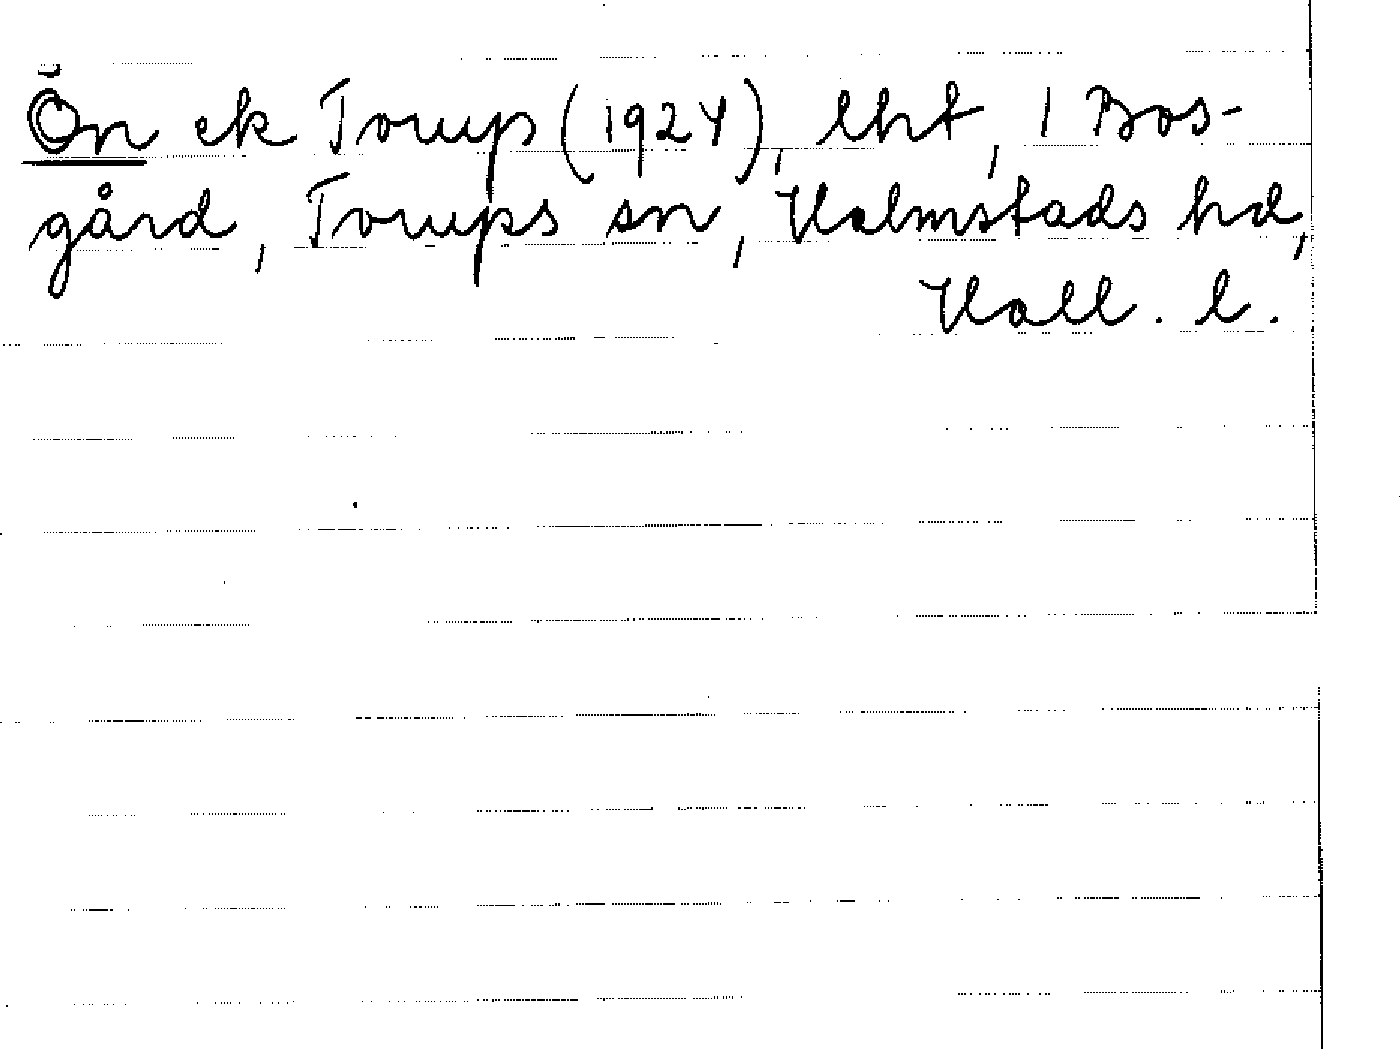 Ön ek Torup (1924), lht, 1 Bos-
gård, Torups sn, Halmstads hd,
Hall. l.